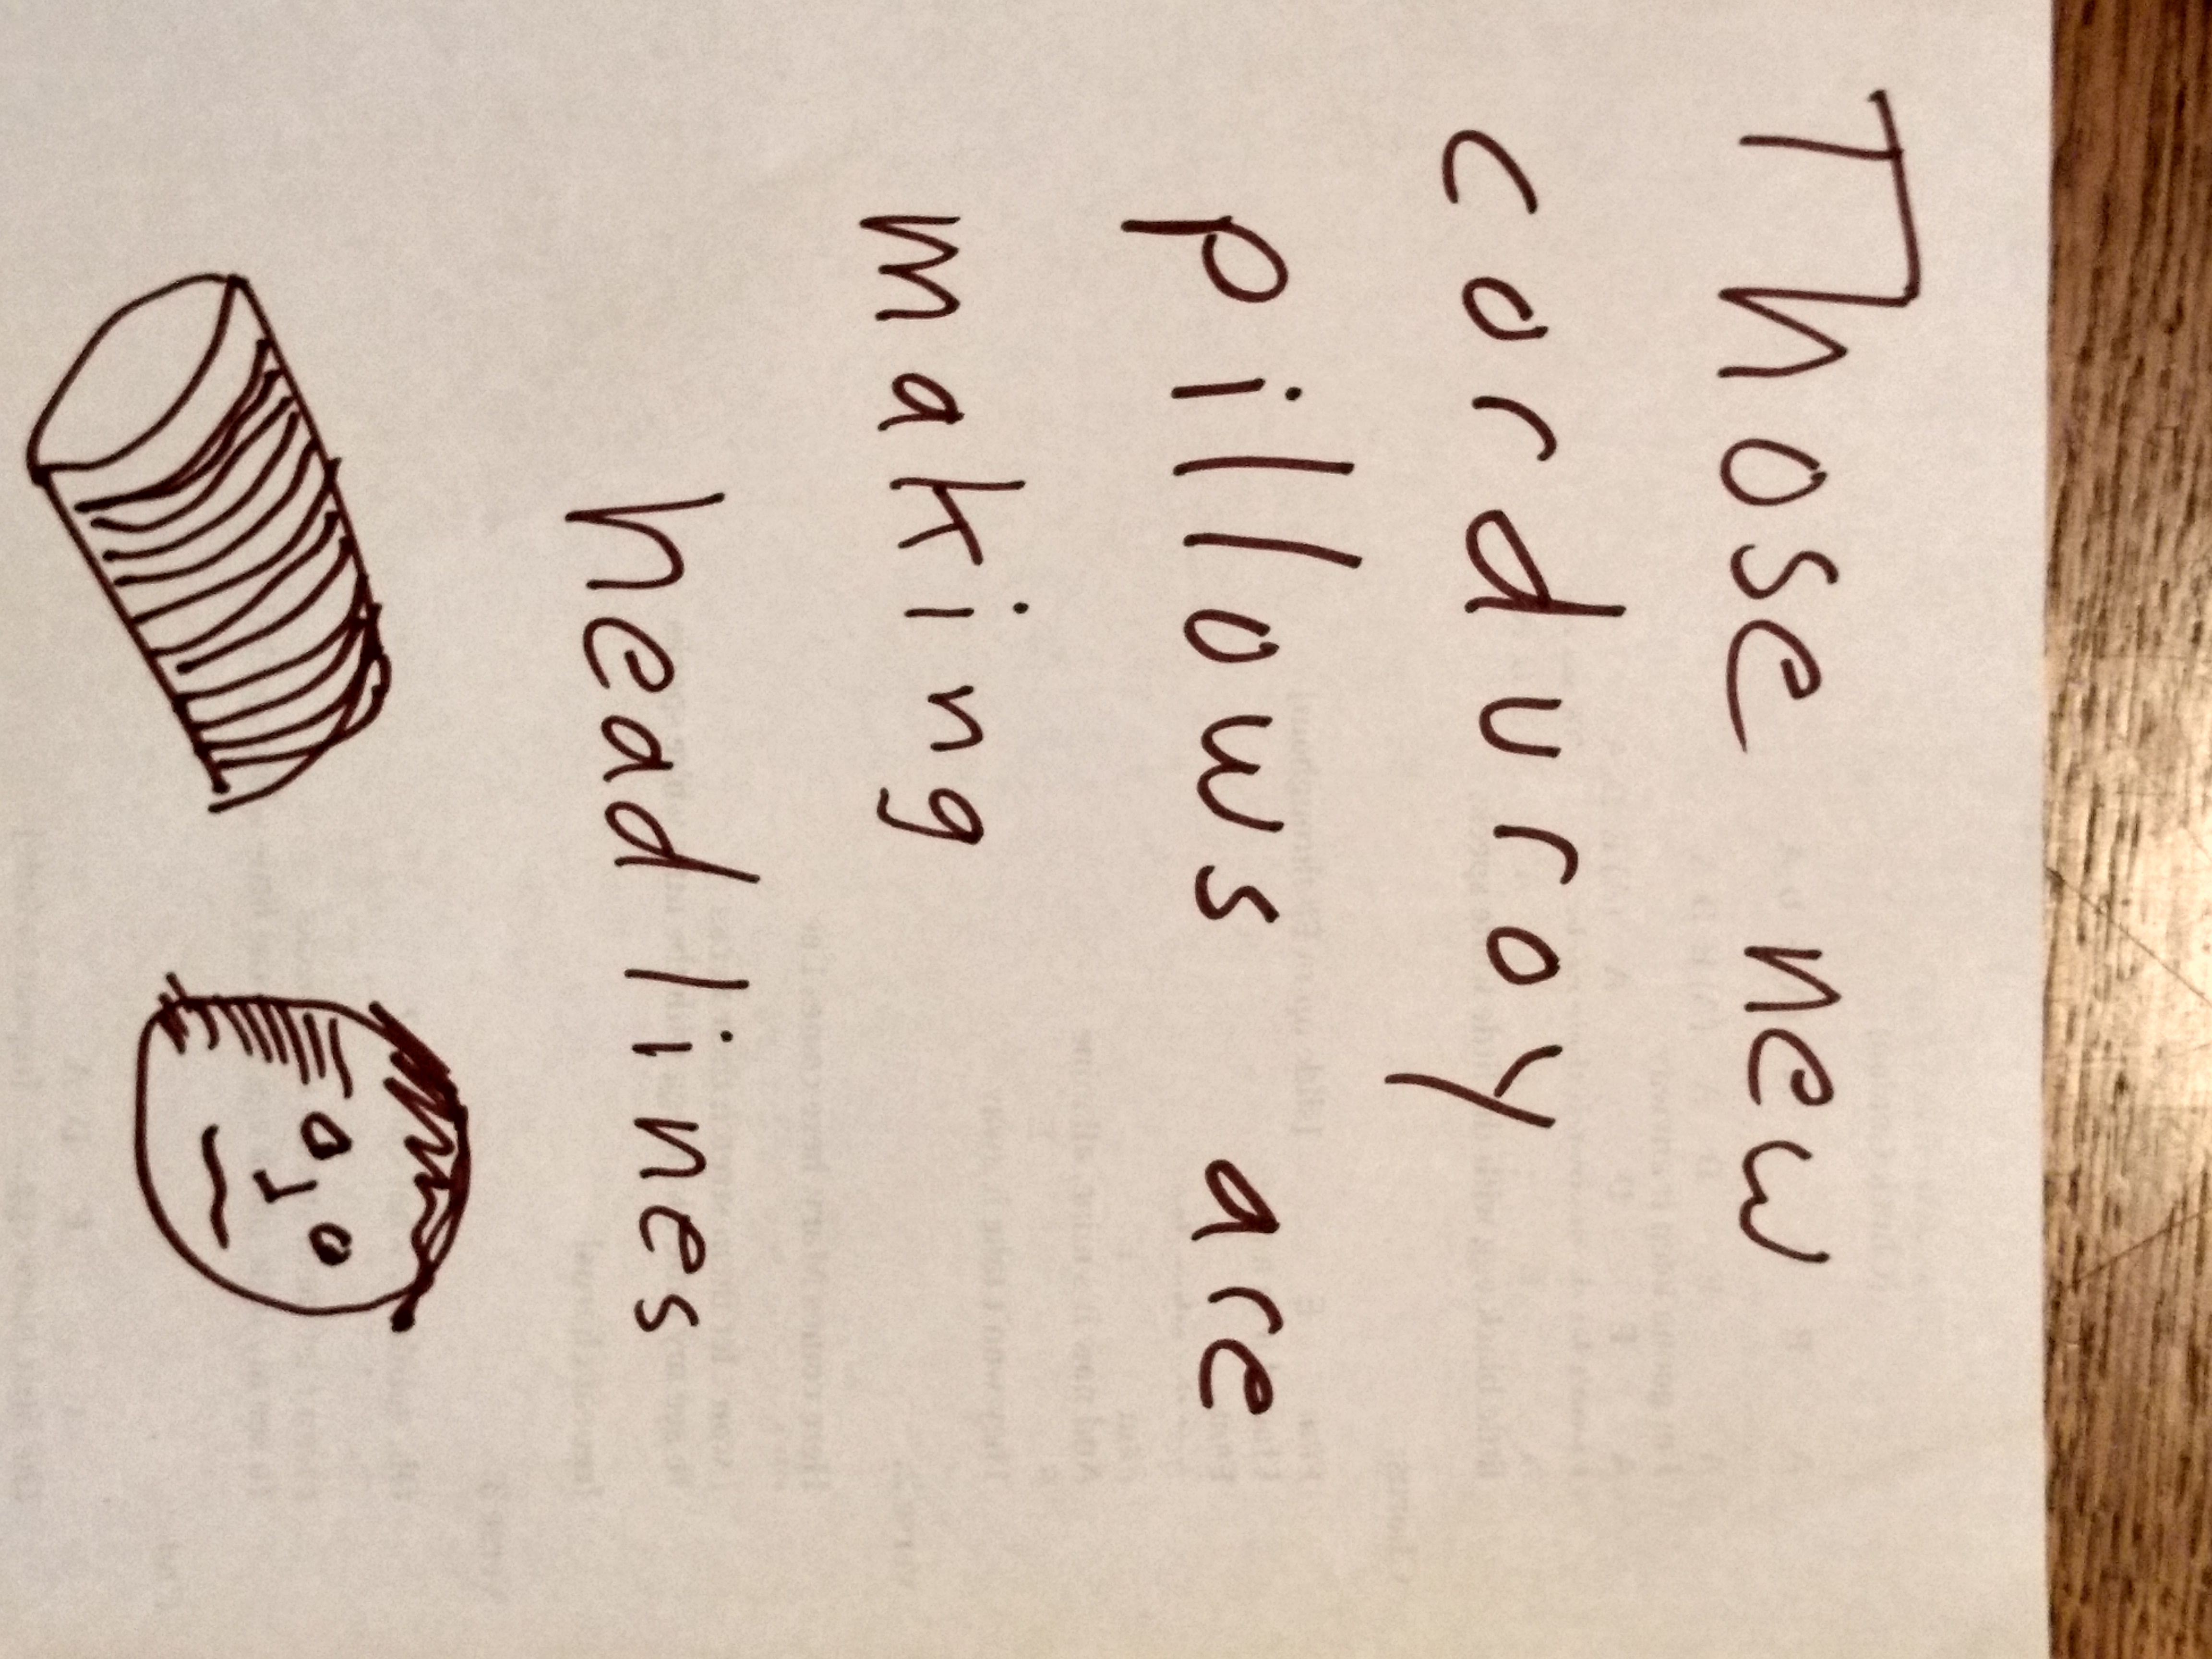 Those new
corduroy
pillows are
making
head lines